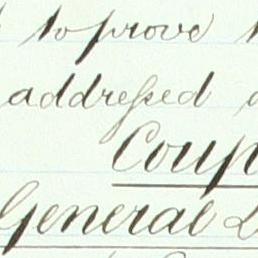 to prove
addressed
Coup
General